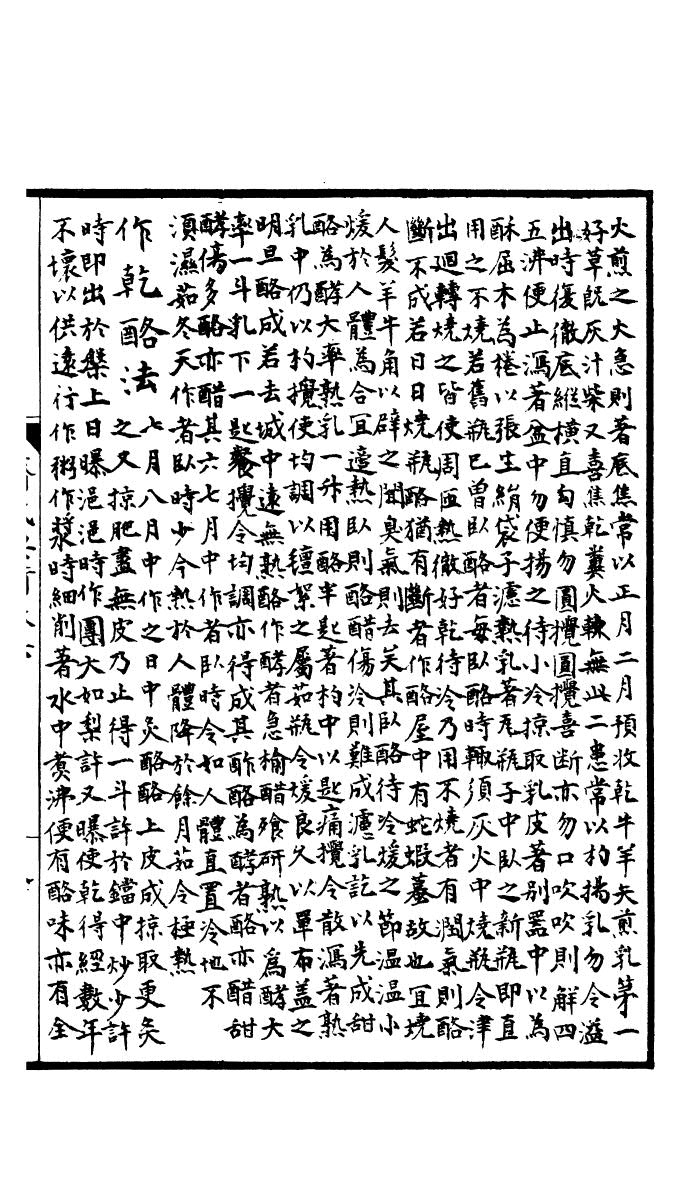 火煎之火急則著底焦常以正月二月預收乾牛羊矢煎乳第一
好草既灰汁柴又喜焦乾糞火軟無此二患常以杓揚乳勿令溢
出時復徹底縱橫直勾慎勿圓攪圓攪喜斷亦勿口吹吹則解四
五沸便止瀉著盆中勿便揚之待小冷掠取乳皮著別器中以為
酥屈木為棬以張生絹袋子濾熟乳著瓦瓶子中臥之新瓶即直
用之不燒若舊瓶已曾臥酪者每臥酪時輒須灰火中燒瓶令津
出迴轉燒之皆使周匝熱徹好乾待冷乃用不燒者有潤氣則酪
斷不成若日日燒瓶酪猶有斷者作酪屋中有蛇蝦蟇故也宜燒
人髮羊牛角以辟之聞臭氣則去矣其臥酪待冷煖之節溫溫小
煖於人體為合宜適熱臥則酪醋傷冷則難成濾乳訖以先成甜
酪為酵大率熟乳一升用酪半匙著杓中以匙痛攪令散瀉著熟
乳中仍以杓攪使均調以氊絮之屬茹瓶令煖良久以單布蓋之
明旦酪成若去城中遠無熟酪作酵者急榆醋飱研熟以為酵大
率一斗乳下一匙飱攪令均調亦得成其酢酪為酵者酪亦醋甜
酵傷多酪亦醋其六七月中作者臥時令如人體直置冷地不
須濕茹冬天作者臥時少令熱於人體降於餘月茹令極熱
作乾酪法
七月八月中作之日中炙酪酪上皮成掠取更炙
之又掠肥盡無皮乃止得一斗許於鐺中炒少許
時即出於槃上日曝浥浥時作團大如梨許又曝使乾得經數年
不壞以供遠行作粥作漿時細削著水中煑沸便有酪味亦有全